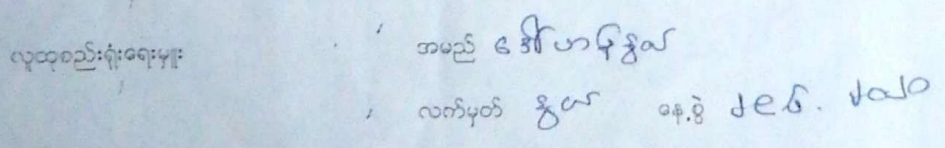 လူထုစည်းရုံးရေးမှူး အမည် ဒေါ်ဟာနီနွယ်
လက်မှတ် နွယ် နေ့စွဲ ၂၉.၆.၂၀၂၀